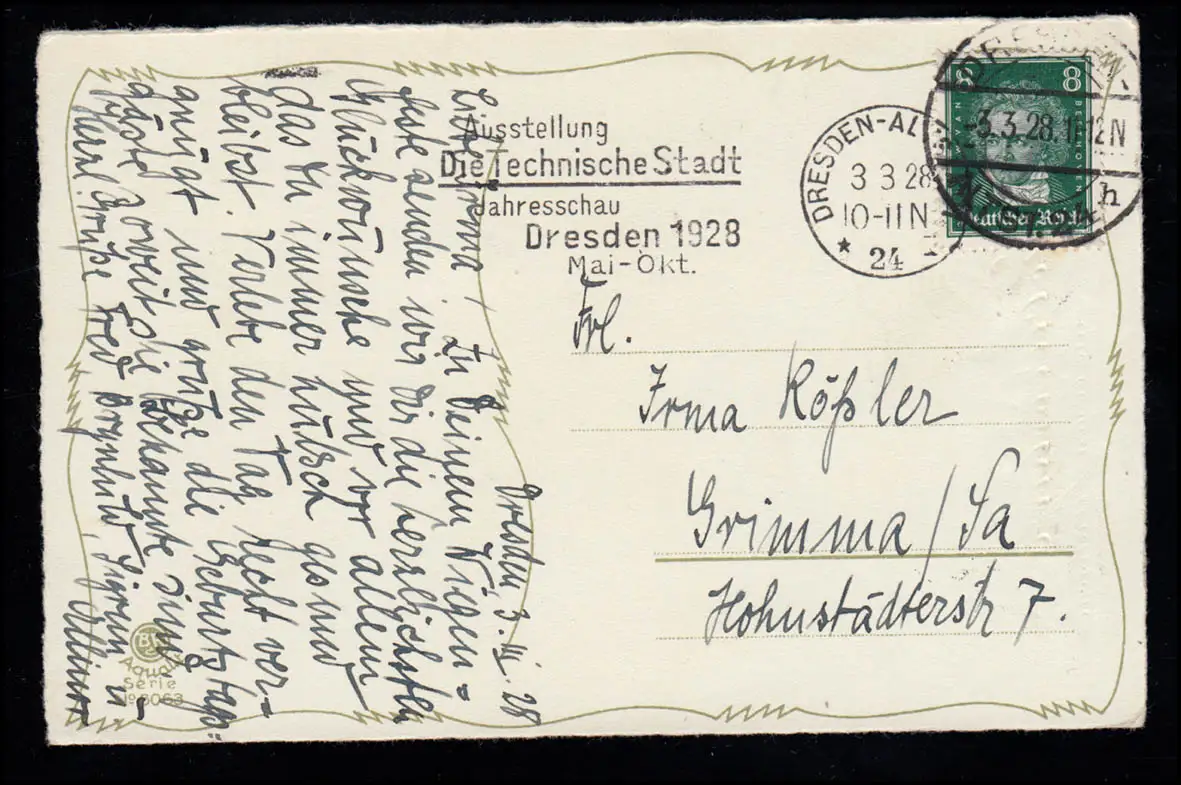 Ausstellung
Die Technische Stadt
Jahresschau
Dresden 1928
Mai-Okt.
DRESDEN-AL
3 3 28
10-11 N
* 24
DRESDEN
-3.3.28. 11-12 N
h
8 8
VAN BEETHOVEN
Deutsches Reich
Frl.
Irma Rößler
Grimma / Sa
Hohnstädterstr 7.
Dresden, 3. III. 28
Liebe Irma! Zu Deinem Wiegen=
feste senden wir Dir die herzlichsten
Glückwünsche und vor allem
das Du immer hübsch gesund
bleibst. Verlebe den Tag recht ver-
gnügt und grüße die Geburtstags=
gäste soweit sie Bekannte sind
Herzl. Grüße Fred Brynhild, Sigrun u
BR
Aquarell
Serie
No 8063